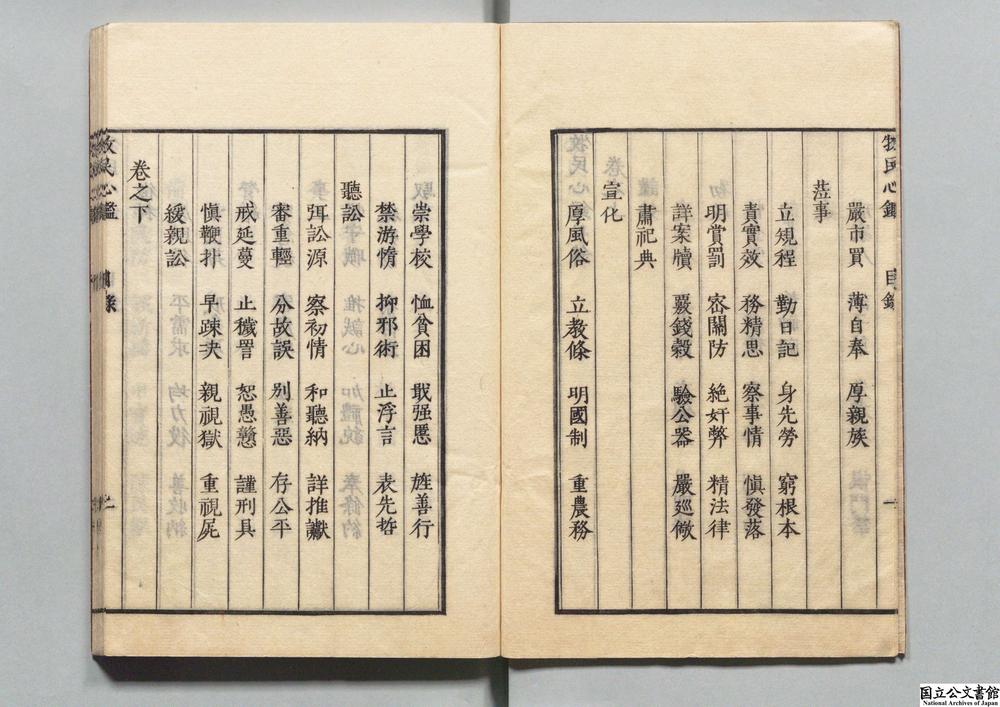 嚴市買 薄自奉 厚親族
蒞事
立規程 勤日記 身先勞 窮根本
責實效 務精思 察事情 慎發落
明賞罰 密關防 絶奸弊 精法律
詳案牘 覈錢穀 驗公器 嚴廵儆
肅祀典
宣化
厚風俗 立教條 明國制 重農務
牧民心鑑 目錄 一
崇學校 恤貧困 戢强惡 旌善行
禁游惰 抑邪術 止浮言 表先哲
聽訟
弭訟源 察初情 和聽納 詳推讞
審重輕 分故誤 别善惡 存公平
戒延蔓 止穢詈 恕愚戇 謹刑具
慎鞭扑 早疎决 親視獄 重視屍
緩親訟
卷之下
牧民心鑑 目錄
国立公文書館
National Archives of Japan